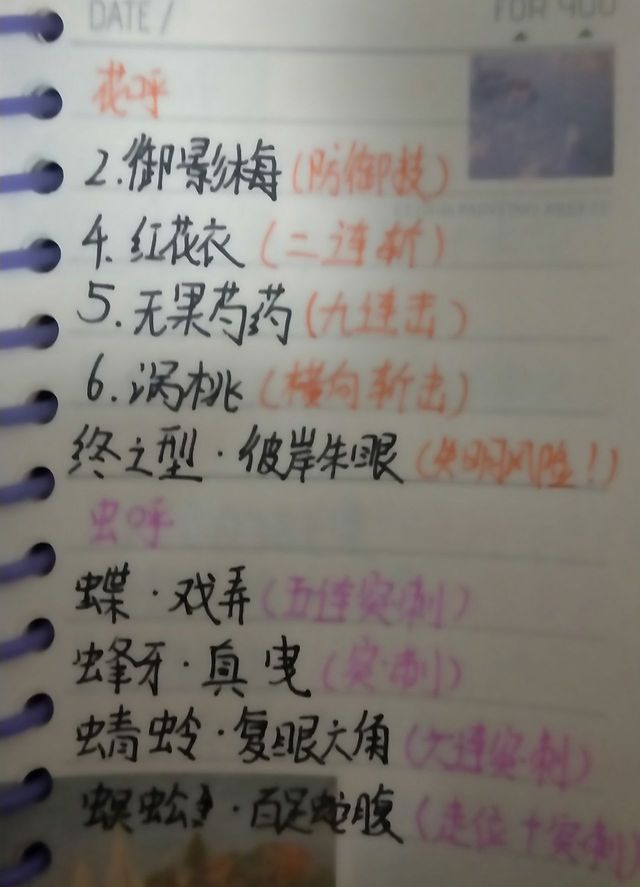 DATE /
FOR YOU
花呼
2.御影梅(防御技)
4.红花衣(二连斩)
5.无果芍药(九连击)
6.涡桃(横向斩击)
终之型·彼岸朱眼(失明风险!)
虫呼
蝶·戏弄(五连突刺)
蜂牙·真曳(突刺)
蜻蛉·复眼六角(六连突刺)
蜈蚣·百足蛇腹(走位+突刺)